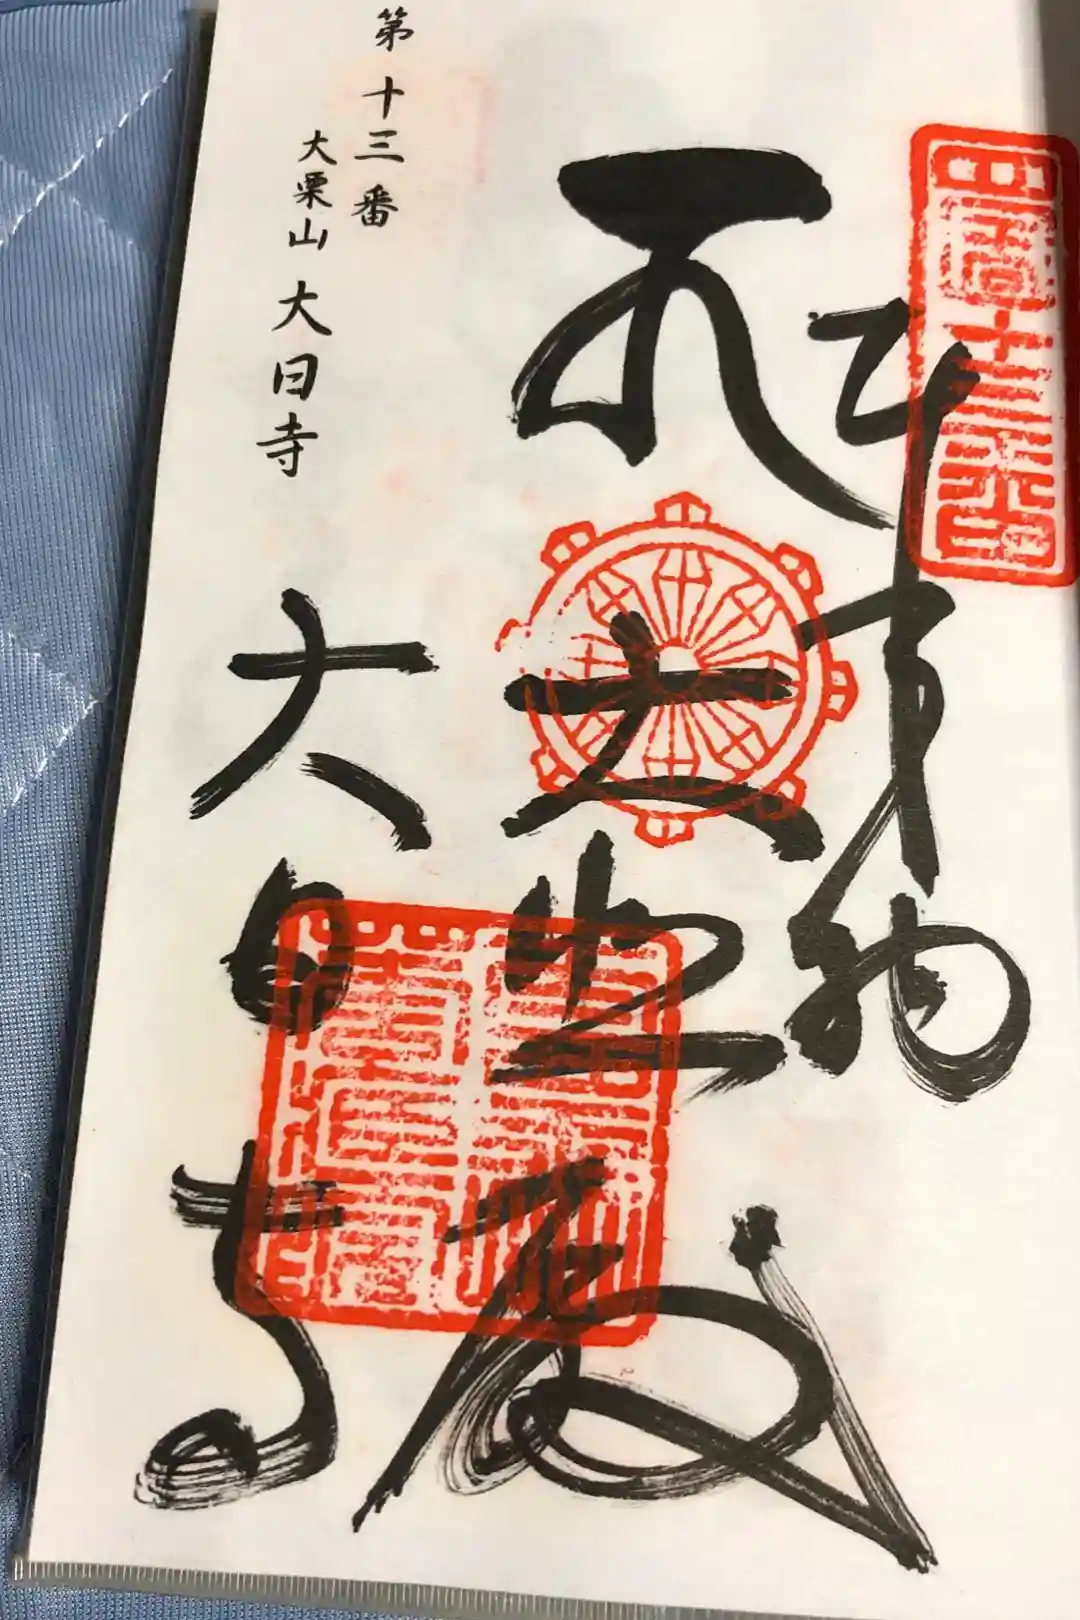 四国十三番
奉納
大悲殿
大日寺
第十三番
大栗山 大日寺